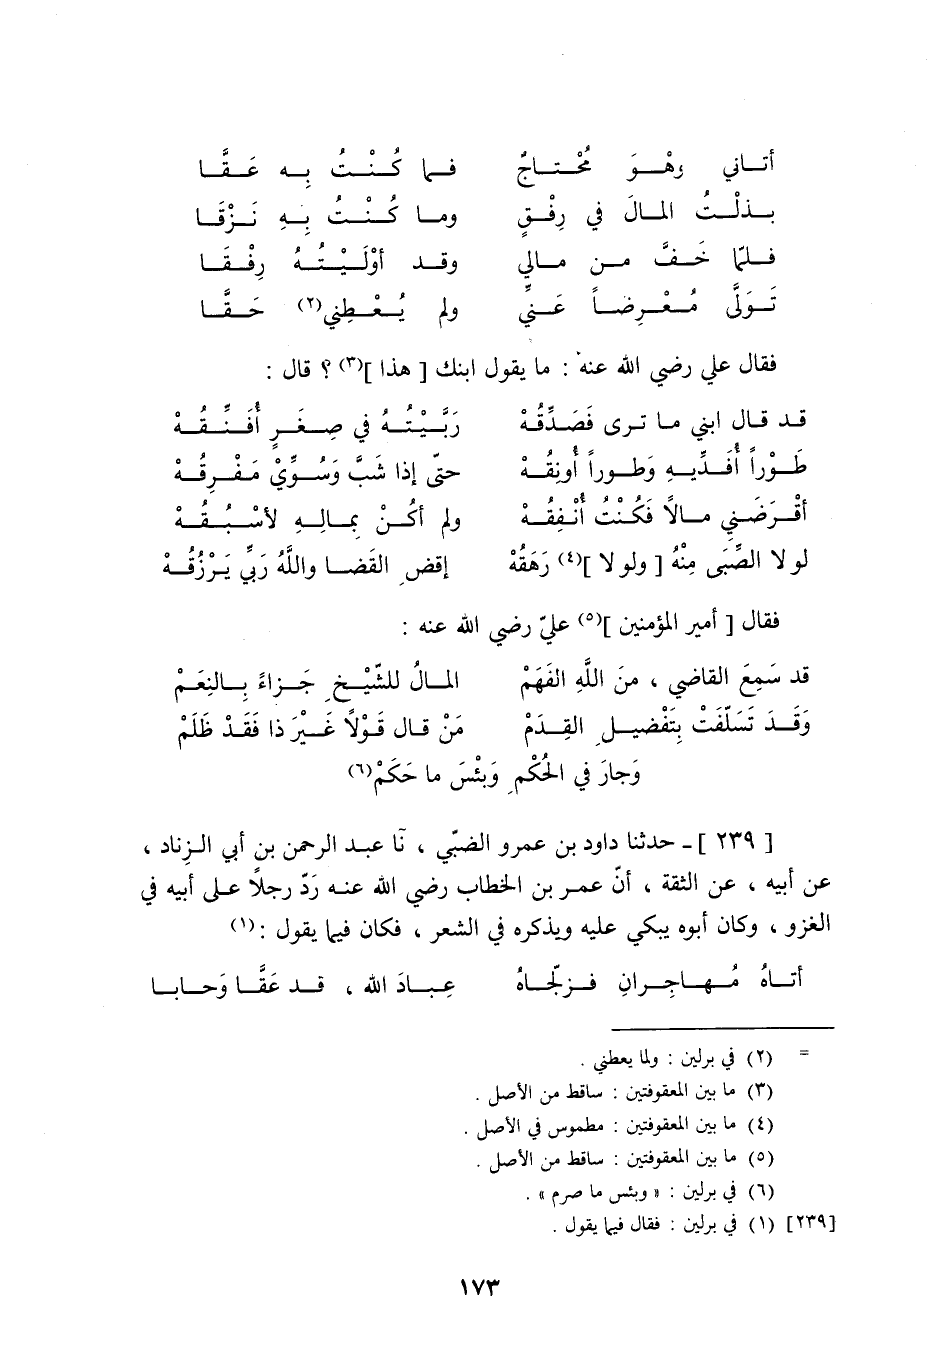 أتاني وهْوَ مُحْتاجٌ فما كُنْتُ بِهِ عَقَّا
بذلْتُ المالَ في رِفْقٍ وما كُنْتُ بِهِ نَزْقَا
فلمّا خَفَّ من مالي وقد أوْلَيْتُهُ رِفْقَا
تَوَلَّى مُعْرِضاً عَنِّي ولم يُعْطِني(٢) حَقَّا
فقال علي رضي الله عنه : ما يقول ابنك [ هذا ](٣) ؟ قال :
قد قال ابني ما ترى فَصَدِّقُهْ رَبَّيْتُهُ في صِغَرٍ أُفَنِّقُهْ
طَوْراً أُفَدِّيهِ وَطوراً أُونِقُهْ حتّى إذا شَبَّ وَسُوِّيْ مَفْرِقُهْ
أقْرَضَني مالاً فَكُنْتُ أُنْفِقُهْ ولم أكُنْ بمالِهِ لأسْبُقُهْ
لولا الصِّبَى مِنْهُ [ ولولا ](٤) رَهَقُهْ إقضِ القَضا واللَّهُ رَبِّي يَرْزُقُهْ
فقال [ أمير المؤمنين ](٥) عليّ رضي الله عنه :
قد سَمِعَ القاضي ، مِنَ اللَّهِ الفَهَمْ المالُ للشّيْخِ جَزاءً بالنِعَمْ
وَقَدَ تَسَلَّفْتَ بِتَفْضِيلِ القِدَمْ مَنْ قال قَوْلاً غَيْرَ ذا فَقَدْ ظَلَمْ
وَجارَ في الحُكْمِ وَبِئْسَ ما حَكَمْ(٦)
[ ٢٣٩ ] ـ حدثنا داود بن عمرو الضبّي ، نَا عبد الرحمن بن أبي الزناد ،
عن أبيه ، عن الثقة ، أنّ عمر بن الخطاب رضي الله عنه رَدّ رجلاً على أبيه في
الغزو ، وكان أبوه يبكي عليه ويذكره في الشعر ، فكان فيما يقول :(١)
أتاهُ مُهاجرانِ فزلّجاهُ عِبادَ الله ، قد عَقَّا وَحابا
= (٢) في برلين : ولما يعطني .
(٣) ما بين المعقوفتين : ساقط من الأصل .
(٤) ما بين المعقوفتين : مطموس في الأصل .
(٥) ما بين المعقوفتين : ساقط من الأصل .
(٦) في برلين : « وبئس ما صرم » .
[٢٣٩] (١) في برلين : فقال فيما يقول .
١٧٣